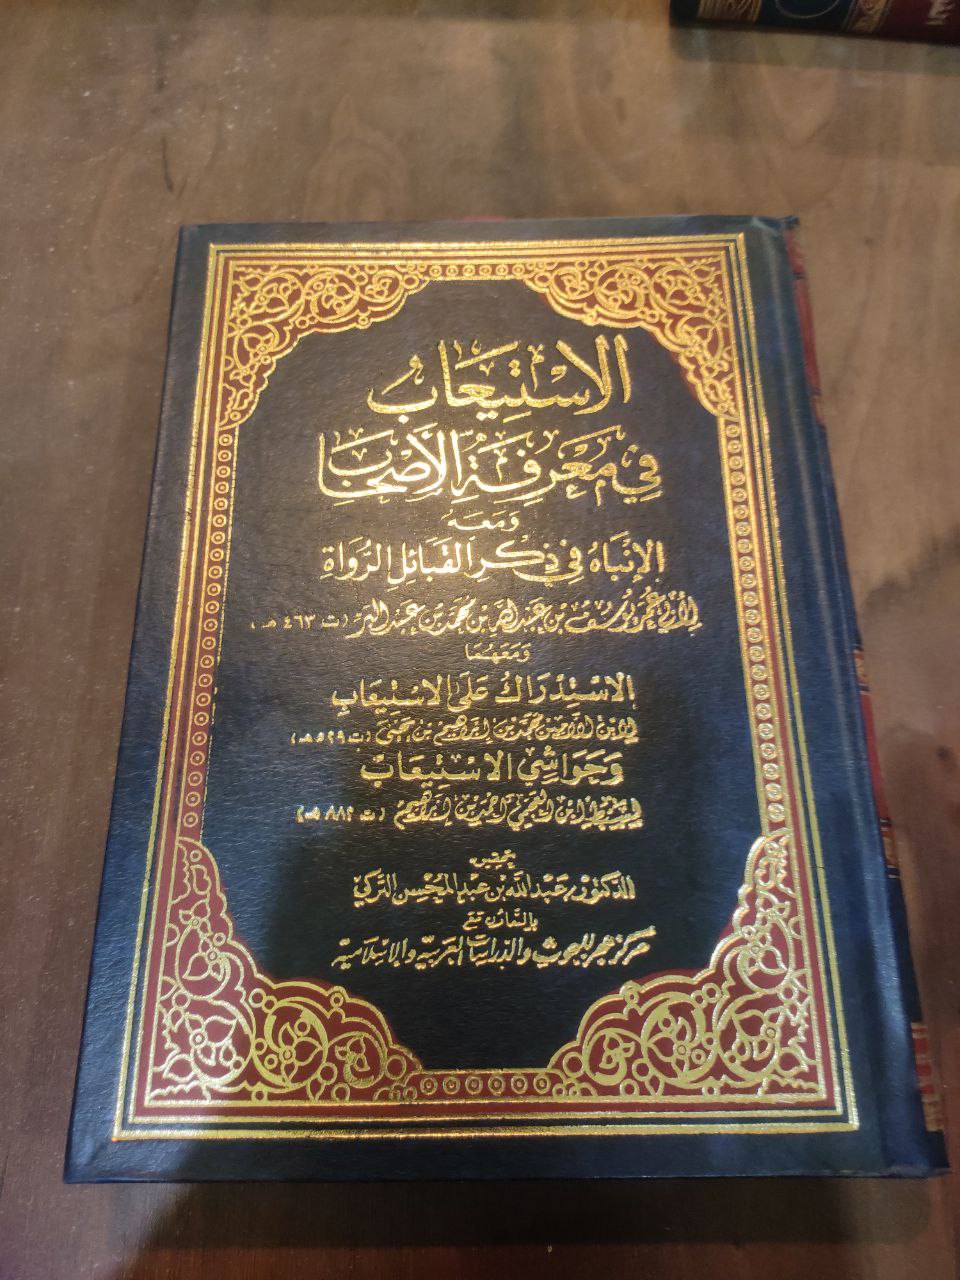 الاستيعاب
في معرفة الأصحاب
ومعه
الإنباه في ذكر القبائل الرواة
لأبي عمر يوسف بن عبد الله بن محمد بن عبد البر (ت ٤٦٣ هـ)
ومعهما
الاستدراك على الاستيعاب
لابن الأمين محمد بن إبراهيم بن يحيى (ت ٥٢٩ هـ)
وحواشي الاستيعاب
لسبط ابن العجمي أحمد بن إبراهيم (ت ٨٨٢ هـ)
تحقيق
الدكتور عبد الله بن عبد المحسن التركي
بالتعاون مع
مركز هجر للبحوث والدراسات العربية والإسلامية